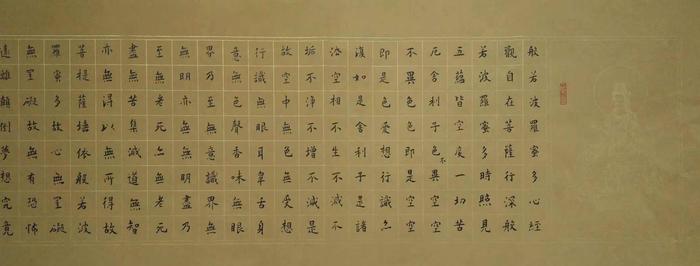 般若波羅蜜多心經
觀自在菩薩行深般
若波羅蜜多時照見
五蘊皆空度一切苦
厄舍利子色不異空空
不異色色即是空空
即是色受想行識亦
復如是舍利子是諸
法空相不生不滅不
垢不淨不增不減是
故空中無色無受想
行識無眼耳鼻舌身
意無色聲香味無眼
界乃至無意識界無
無明亦無無明盡乃
至無老死亦無老死
盡無苦集滅道無智
亦無得以無所得故
菩提薩埵依般若波
羅蜜多故心無罣礙
無罣礙故無有恐怖
遠離顛倒夢想究竟